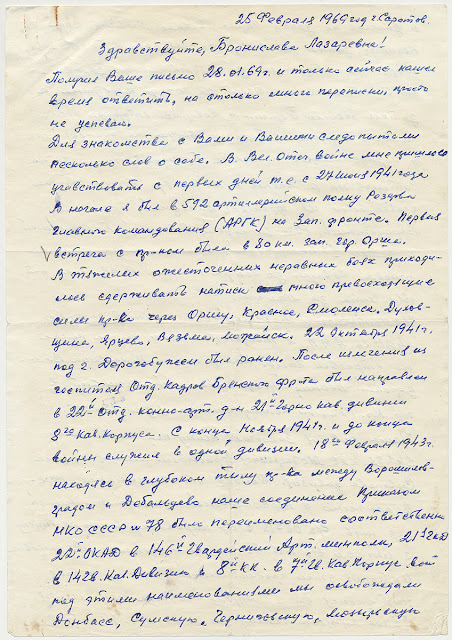 25 Февраля 1969 год г. Саратов.
Здравствуйте, Бронислава Лазаревна!
Получил Ваше письмо 28.01.69 г. и только сейчас нашел
время ответить, на столько много переписки, просто
не успеваю.
Для знакомства с Вами и Вашими следопытами
несколько слов о себе. В Вел. Отеч. войне мне пришлось
участвовать с первых дней т.е. с 27 июня 1941 года
В начале я был в 592 артиллерийском полку Резерва
Главного командования (АРГК) на Зап. фронте. Первая
встреча с пр-ком была в 80 км. зап. гор. Орша.
В тяжелых ожесточенных неравных боях приходи-
лось сдерживать натиск много превосходящие
силы пр-ка через Оршу, Красное, Смоленск, Духов-
щина, Ярцево, Вязьма, Можайск. 22 Октября 1941 г.
под г. Дорогобужем был ранен. После излечения из
госпиталя Отд. Кадров Брянского фр-та был направлен
в 22й Отд. конно-арт. д-н 21й Горно кав. дивизии
8го Кав. Корпуса. С конца Ноября 1941 г. и до конца
войны служил в одной дивизии. 18го Февраля 1943 г.
находясь в глубоком тылу пр-ка между Ворошилов-
градом и Дебальцево наше соединение Приказом
НКО СССР № 78 было переименовано соответственно
22й ОКАД в 146й Гвардейский Арт. минполк, 21 ГКД
в 14 Гв. Кав. Дивизию и 8й КК. в 7й Гв. Кав Корпус. Вот
под этими наименованиями мы освобождали
Донбасс, Сумскую, Черниговскую, Мозырскую